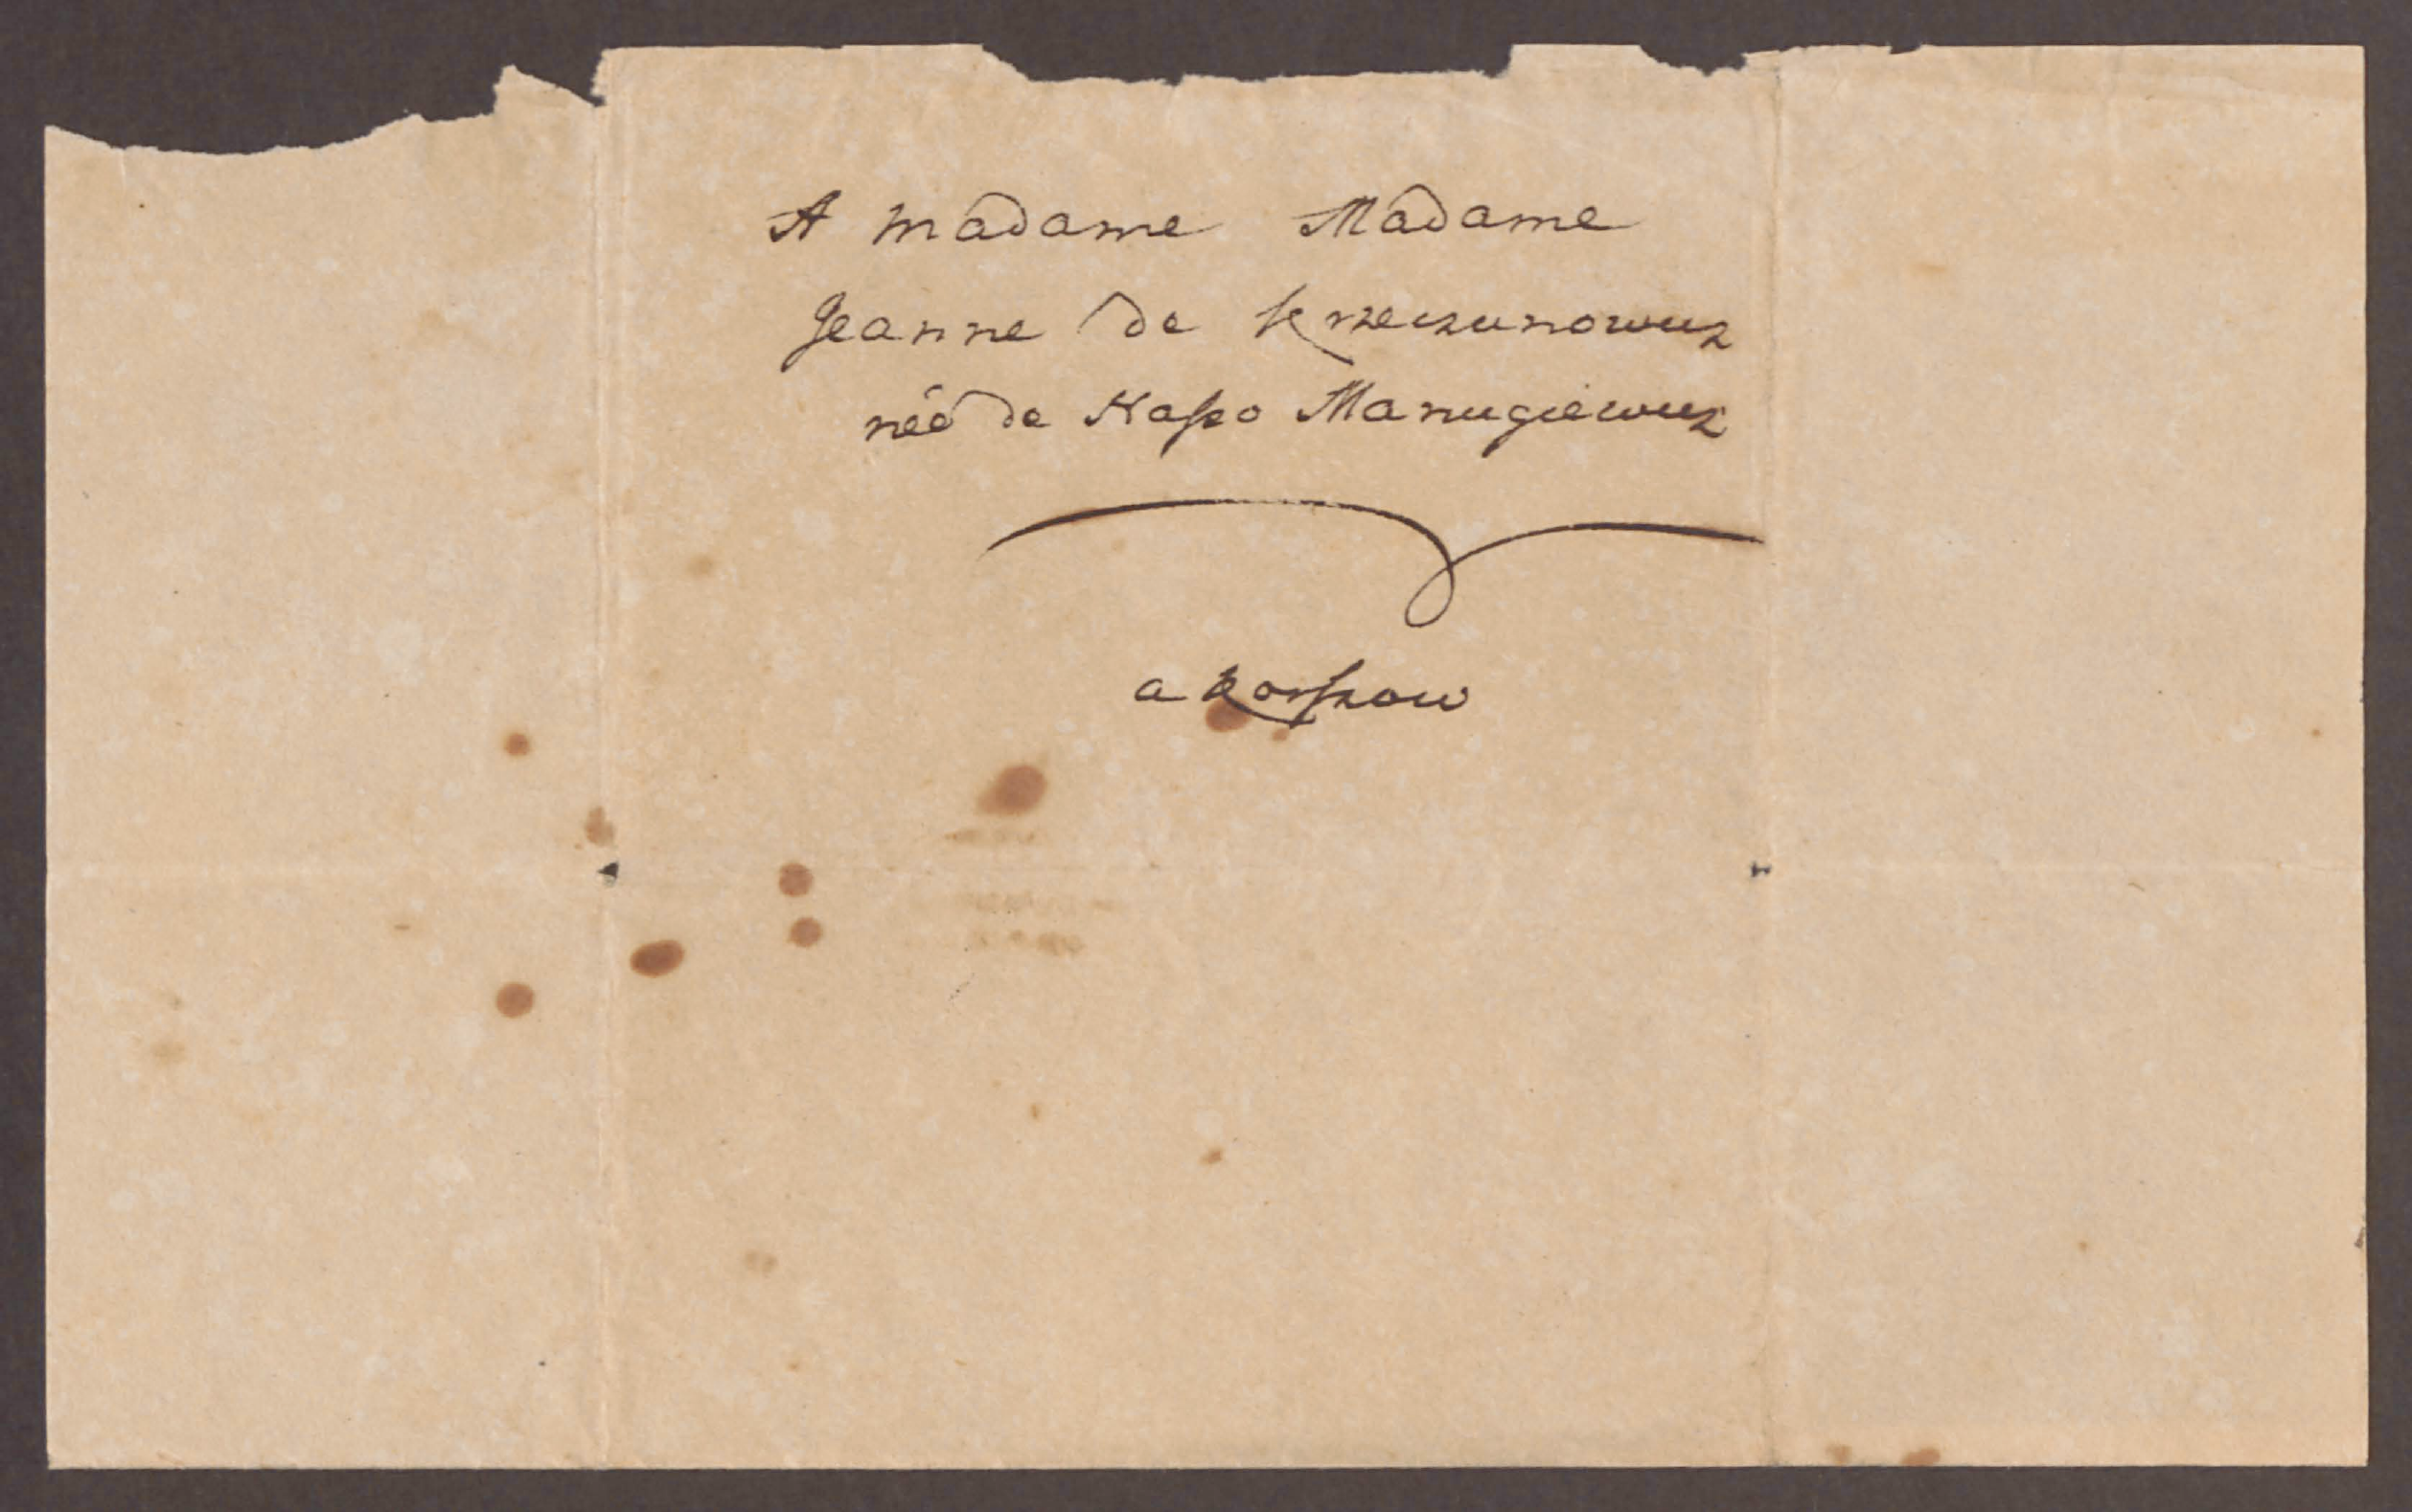 A Madame Madame
Jeanne de Krzeczunowicz
née de Haszo Manugiewicz
a Korszow